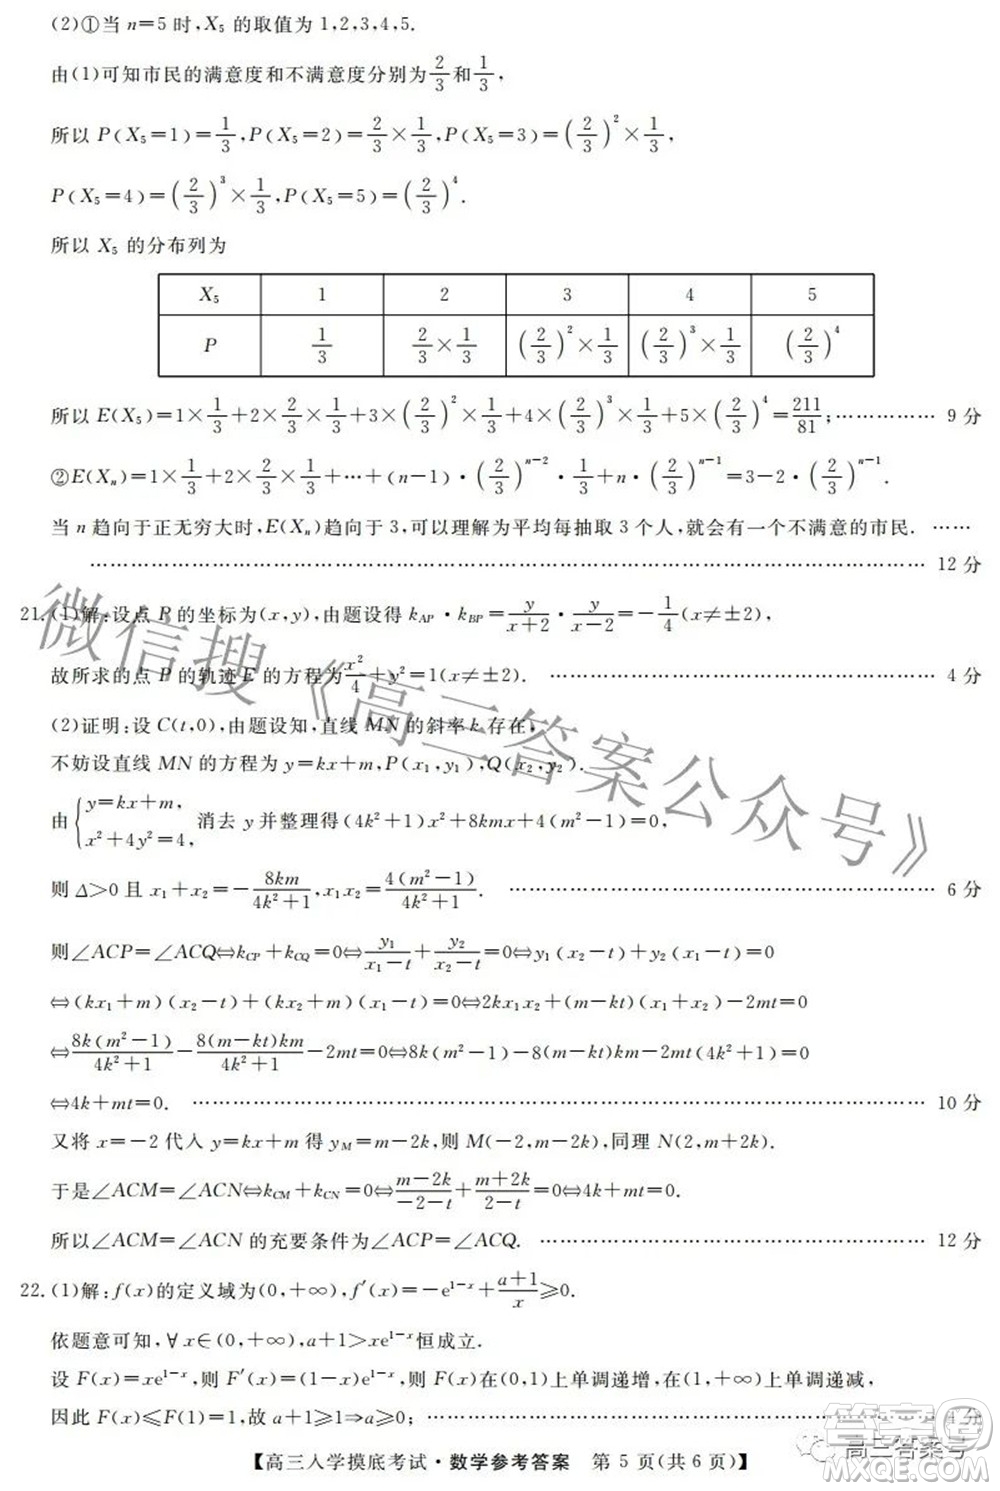 (2)①当 n=5 时,X₅ 的取值为 1,2,3,4,5.
由(1)可知市民的满意度和不满意度分别为 2/3 和 1/3,
所以 P(X₅=1)=1/3,P(X₅=2)=2/3×1/3,P(X₅=3)=(2/3)²×1/3,
P(X₅=4)=(2/3)³×1/3,P(X₅=5)=(2/3)⁴.
所以 X₅ 的分布列为
X₅ 1 2 3 4 5
P 1/3 2/3×1/3 (2/3)²×1/3 (2/3)³×1/3 (2/3)⁴
所以 E(X₅)=1×1/3+2×2/3×1/3+3×(2/3)²×1/3+4×(2/3)³×1/3+5×(2/3)⁴=211/81;…………… 9 分
②E(Xₙ)=1×1/3+2×2/3×1/3+…+(n-1)·(2/3)ⁿ⁻²·1/3+n·(2/3)ⁿ⁻¹=3-2·(2/3)ⁿ⁻¹.
当 n 趋向于正无穷大时,E(Xₙ)趋向于 3,可以理解为平均每抽取 3 个人,就会有一个不满意的市民. ……
………………………………………………………………………… 12 分
21.(1)解:设点 P 的坐标为(x,y),由题设得 k_AP·k_BP=y/(x+2)·y/(x-2)=-1/4(x≠±2),
故所求的点 P 的轨迹 E 的方程为 x²/4+y²=1(x≠±2). ………………………………… 4 分
(2)证明:设 C(t,0),由题设知,直线 MN 的斜率 k 存在,
不妨设直线 MN 的方程为 y=kx+m,P(x₁,y₁),Q(x₂,y₂).
由{y=kx+m, x²+4y²=4, 消去 y 并整理得(4k²+1)x²+8kmx+4(m²-1)=0,
则 Δ>0 且 x₁+x₂=-8km/(4k²+1),x₁x₂=4(m²-1)/(4k²+1). ………………………………… 6 分
则∠ACP=∠ACQ⇔k_CP+k_CQ=0⇔y₁/(x₁-t)+y₂/(x₂-t)=0⇔y₁(x₂-t)+y₂(x₁-t)=0
⇔(kx₁+m)(x₂-t)+(kx₂+m)(x₁-t)=0⇔2kx₁x₂+(m-kt)(x₁+x₂)-2mt=0
⇔8k(m²-1)/(4k²+1)-8(m-kt)km/(4k²+1)-2mt=0⇔8k(m²-1)-8(m-kt)km-2mt(4k²+1)=0
⇔4k+mt=0. ………………………………………………………………… 10 分
又将 x=-2 代入 y=kx+m 得 y_M=m-2k,则 M(-2,m-2k),同理 N(2,m+2k).
于是∠ACM=∠ACN⇔k_CM+k_CN=0⇔(m-2k)/(-2-t)+(m+2k)/(2-t)=0⇔4k+mt=0.
所以∠ACM=∠ACN 的充要条件为∠ACP=∠ACQ. ………………………………… 12 分
22.(1)解:f(x)的定义域为(0,+∞),f′(x)=-e¹⁻ˣ+(a+1)/x≥0.
依题意可知,∀x∈(0,+∞),a+1≥xe¹⁻ˣ恒成立.
设 F(x)=xe¹⁻ˣ,则 F′(x)=(1-x)e¹⁻ˣ,则 F(x)在(0,1)上单调递增,在(1,+∞)上单调递减,
因此 F(x)≤F(1)=1,故 a+1≥1⇒a≥0; ………………………………………… 4 分
【高三入学摸底考试·数学参考答案 第 5 页(共 6 页)】
微信搜《高三答案公众号》
高三答案号
答案圈
MXQE.COM